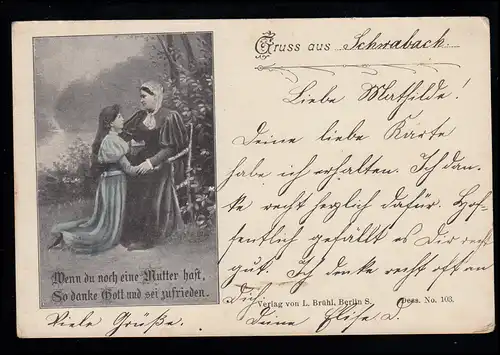 Gruss aus Schwabach.
Liebe Mathilde!
Deine liebe Karte
habe ich erhalten. Ich dan-
ke recht herzlich dafür. Hof-
fentlich gefällt es Dir recht
gut. Ich denke recht oft an
Dich.
Wenn du noch eine Mutter hast,
So danke Gott und sei zufrieden.
Verlag von L. Brühl, Berlin S. Dess. No. 103.
Viele Grüße. Deine Elise. D.